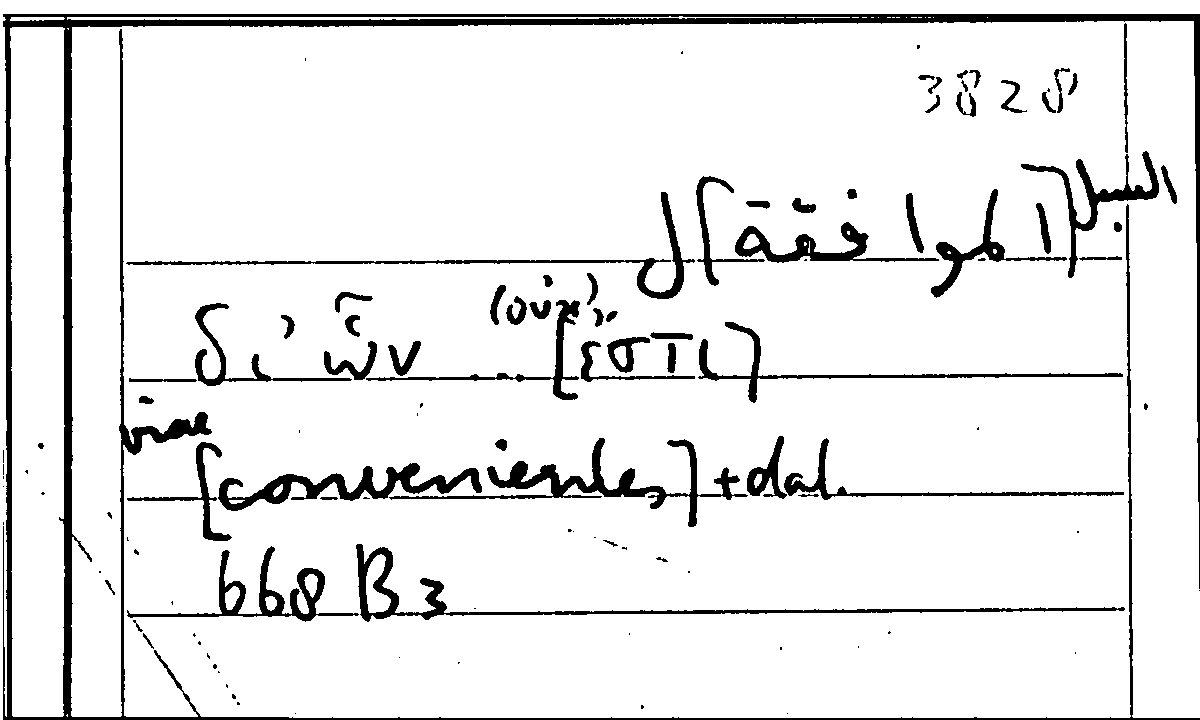 3828
السبل [الموافقة] ل
δι' ὧν ... (οὐχ) [ἐστι]
viae [convenientes] + dat.
668 B 3